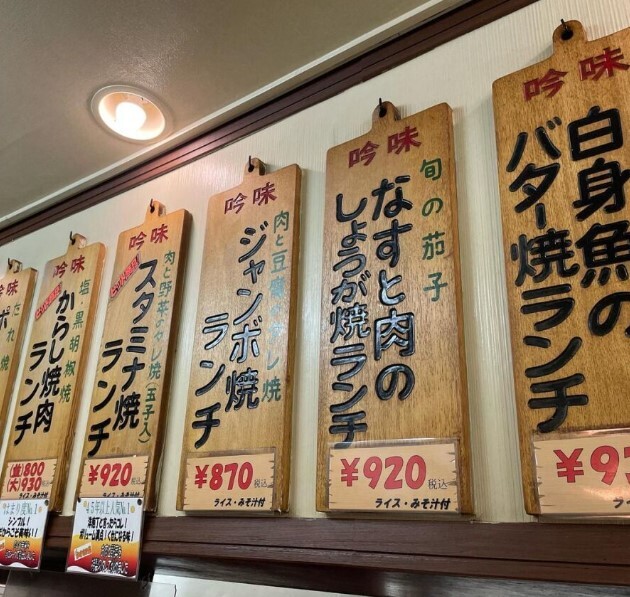 吟味
白身魚の
バター焼ランチ
吟味
旬の茄子
なすと肉の
しょうが焼ランチ
¥920税込
ライス・みそ汁付
吟味
肉と豆腐のタレ焼
ジャンボ焼
ランチ
¥870税込
ライス・みそ汁付
吟味
肉と野菜のタレ焼(玉子入)
スタミナ焼
ランチ
¥920税込
ライス・みそ汁付
吟味
塩・黒胡椒焼
からし焼肉
ランチ
(並)800
(大)930
吟味
たれ焼
シンプル!